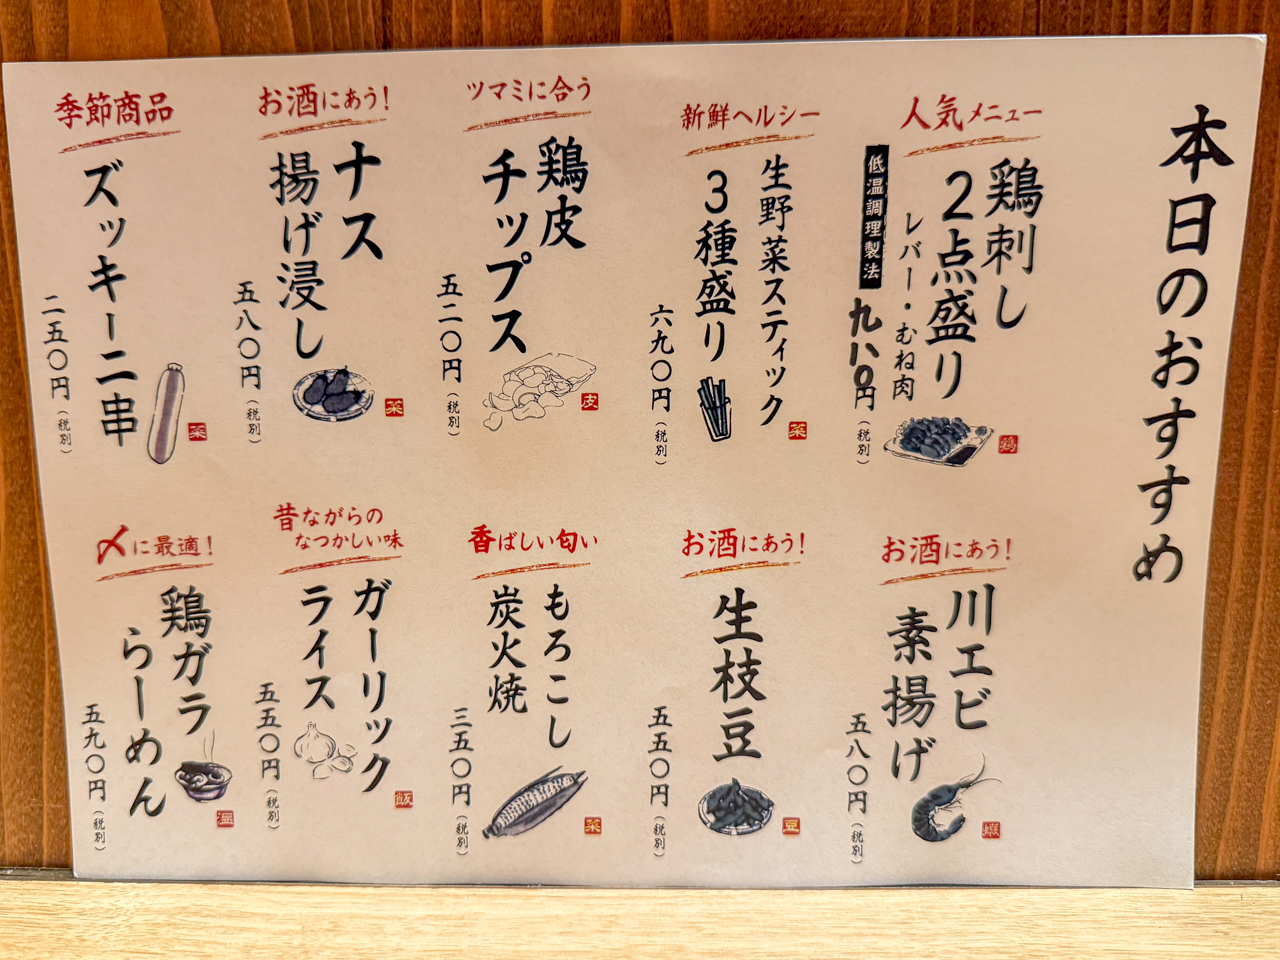 本日のおすすめ
人気メニュー
鶏刺し
2点盛り
レバー・むね肉
低温調理製法
九八〇円（税別）
鶏
新鮮ヘルシー
生野菜スティック
3種盛り
六九〇円（税別）
菜
ツマミに合う
鶏皮
チップス
五二〇円（税別）
皮
お酒にあう!
ナス
揚げ浸し
五八〇円（税別）
菜
季節商品
ズッキーニ串
二五〇円（税別）
菜
お酒にあう!
川エビ
素揚げ
五八〇円（税別）
お酒にあう!
生枝豆
五五〇円（税別）
豆
香ばしい匂い
もろこし
炭火焼
三五〇円（税別）
菜
昔ながらの
なつかしい味
ガーリック
ライス
五五〇円（税別）
飯
〆に最適!
鶏ガラ
らーめん
五九〇円（税別）